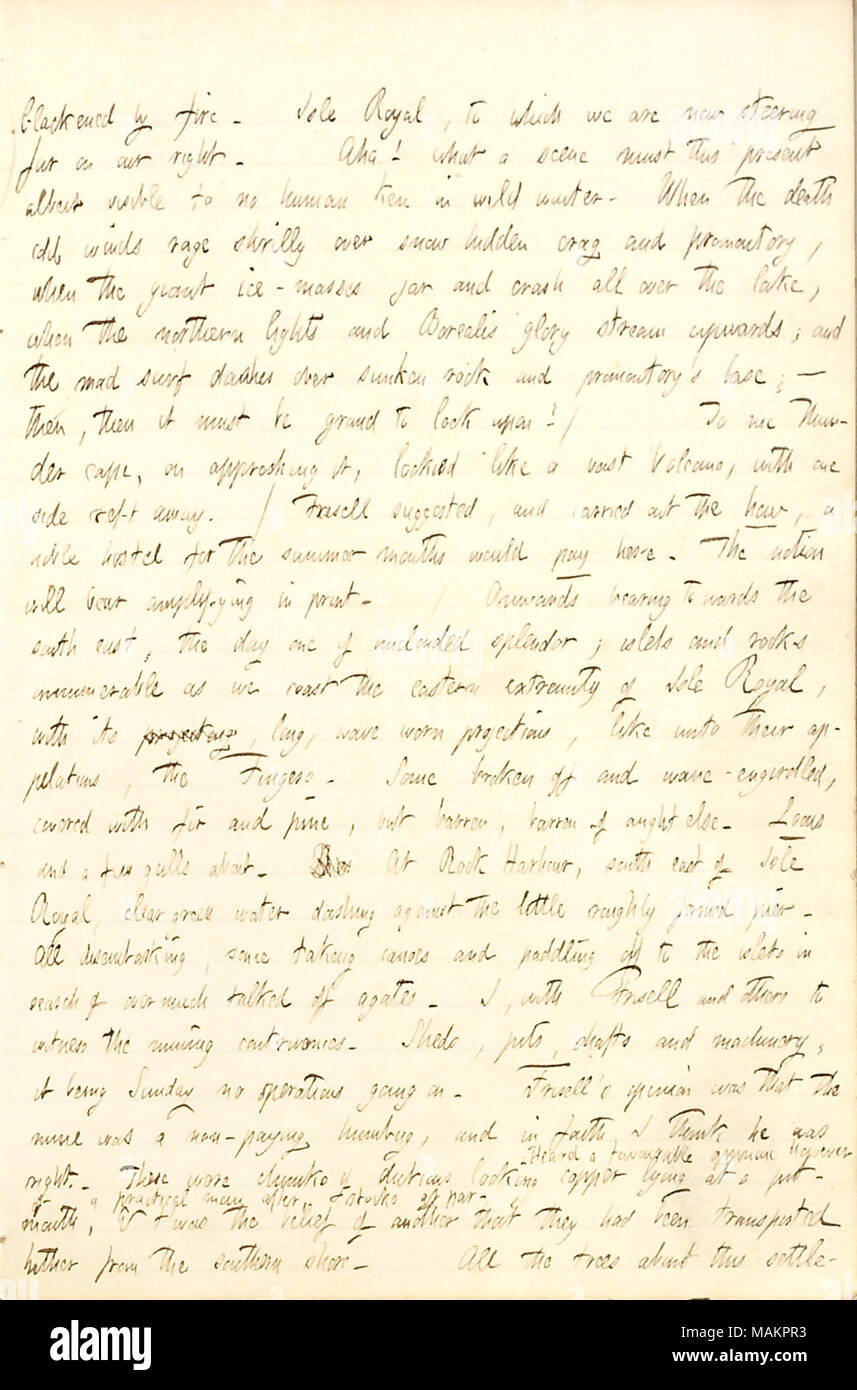 blackened by fire. Isle Royal, to which we are now steering
far on our right. Aha! what a scene must this present
albeit visible to no human ken in wild winter. When the death
cold winds rage shrilly over snow hidden crag and promontory,
when the giant ice-masses jar and crash all over the lake,
when the northern lights and Borealis glory stream upwards; and
the mad surf dashes over sunken rock and promontory's base; —
then, then it must be grand to look upon! / To me Thun-
der cape, on approaching it, looked like a vast Volcano, with one
side reft away. / Frisell suggested, and carried out the how, a
noble hostel for the summer months would pay here. The notion
will bear amplifying in print. / Onwards bearing towards the
south east, the day one of unclouded splendor; islets and rocks
innumerable as we coast the eastern extremity of Isle Royal,
with its projecting, long, wave worn projections, like unto their ap-
pelations, the Fingers. Some broken off and wave-engirdled,
covered with fir and pine, but barren, barren of aught else. Loons
and a few gulls about. At Rock Harbour, south east of Isle
Royal, clear green water dashing against the little roughly formed pier.
All disembarking, some taking canoes and paddling off to the islets in
search of over much talked off agates. I, with Frisell and others to
witness the mining contrivances. Sheds, pits, shafts and machinery,
it being Sunday no operations going on. Frisell's opinion was that the
mine was a non-paying humbug, and in faith I think he was
Heard a favourable opinion however
right. These were chunks of looking copper lying at a pit-
of a practical man after. Stocks at par.
mouth, & t was the belief of another that they had been transported
hither from the southern shore. All the trees about this settle-
alamy
Image ID: MAKPR3
www.alamy.com